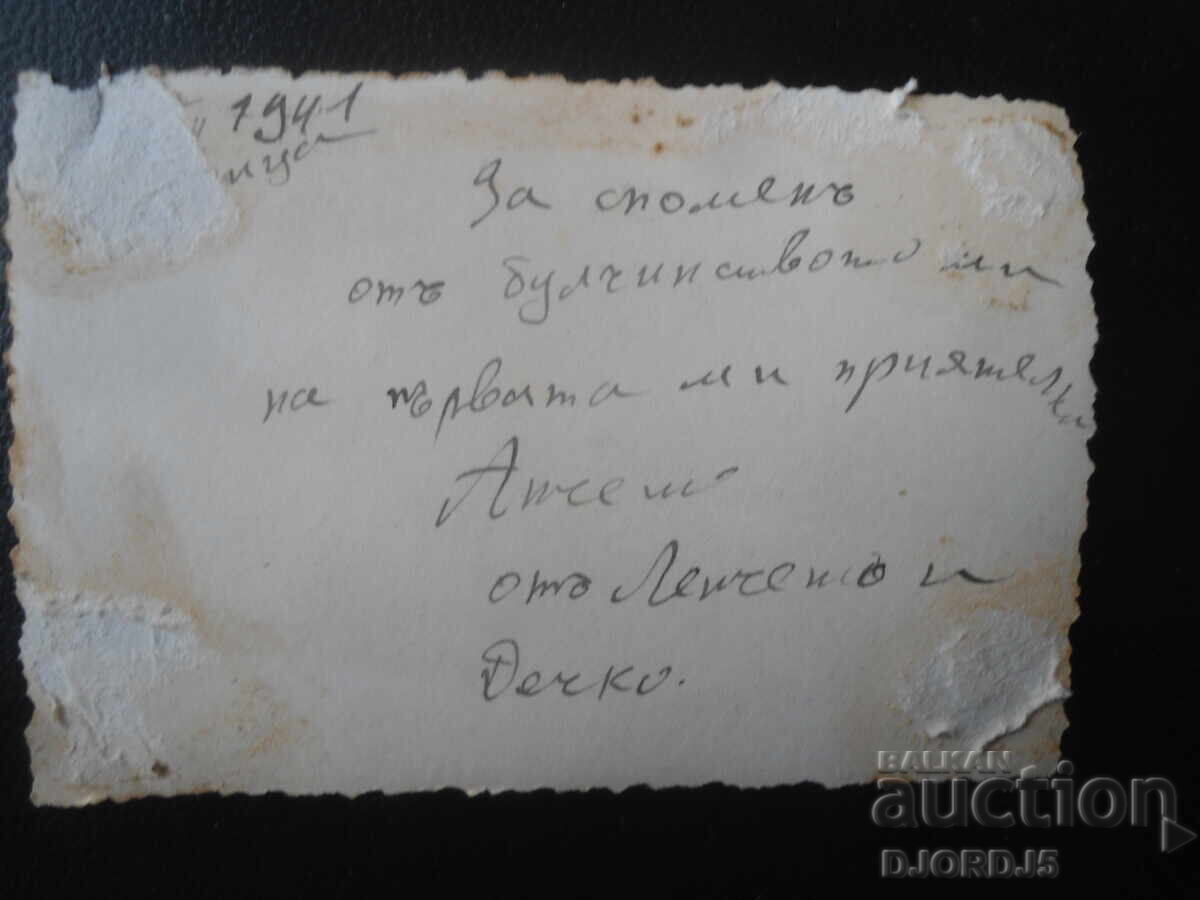 1941
За споменъ
отъ булчинството ми
на първата ми приятелка
Анчето
отъ Ленчето и
Дечко.
BALKAN
auction
DJORDJ5